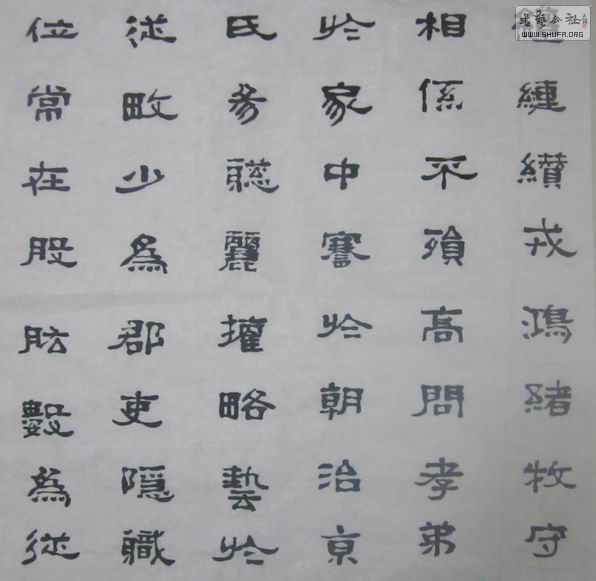 縺纘戎鴻緒牧守
相係不殞高問孝弟
於家中謇於朝治京
氏易聰麗權略藝於
從畋少為郡吏隱職
位常在股肱數為從
書藝公社
WWW.SHUFA.ORG